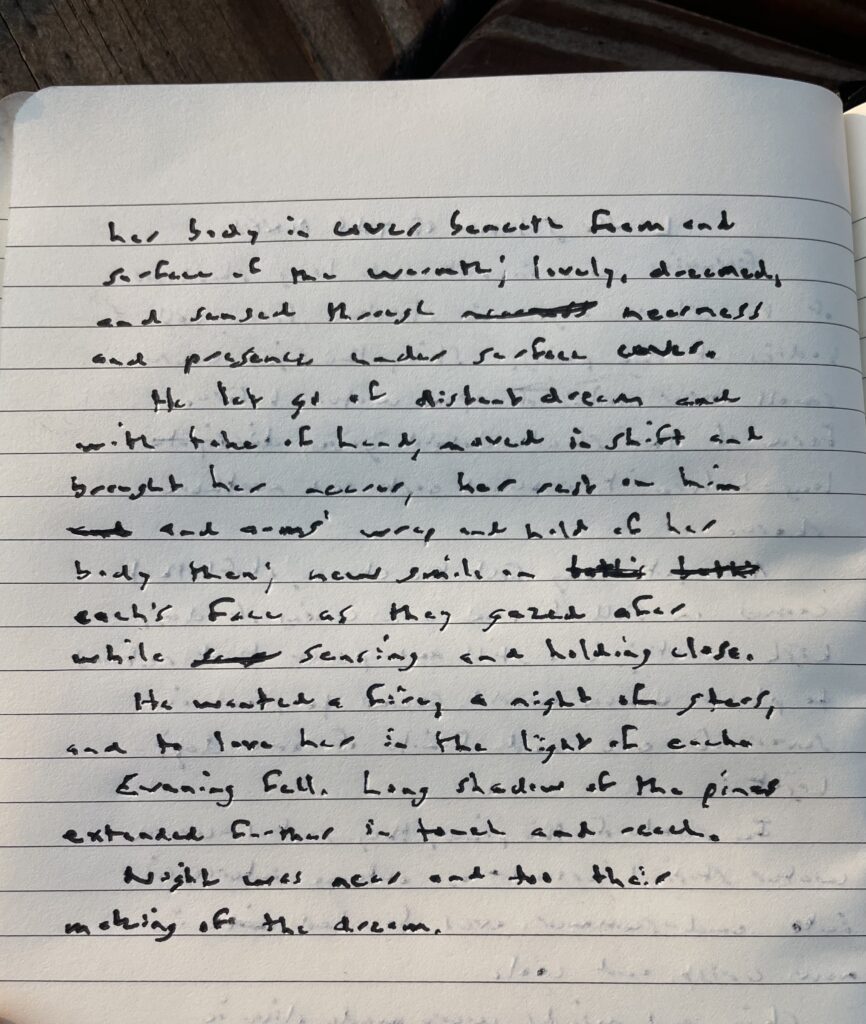 her body in cover beneath foam and
surface of the warmth; lovely, dreamed,
and sensed through nearness
and presence under surface cover.
He let go of distant dream and
with take of hand, moved in shift and
brought her nearer, her rest on him
and arms' wrap and hold of her
body then; new smile on
each's face as they gazed after
while sensing and holding close.
He wanted a fire, a night of stars,
and to love her in the light of each.
Evening fell. Long shadow of the pines
extended further in touch and reach.
Night was near and too their
making of the dream.